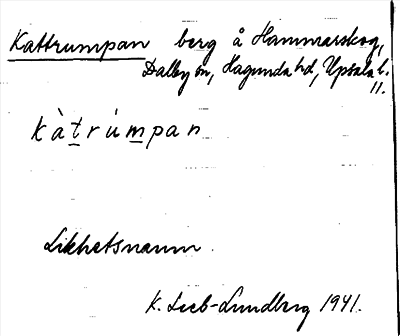 Kattrumpan berg å Hammarskog,
Dalby sn, Hagunda hd, Upsala l.
11.
kàt̲rúm̲pan
Likhetsnamn.
K. Leeb-Lundberg 1941.